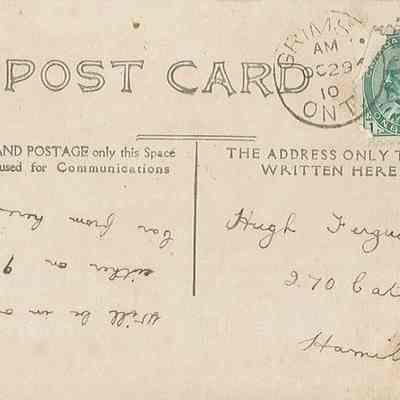 POST CARD
GRIMS
AM
OC 29
10
ONT
AND POSTAGE only this Space
used for Communications
THE ADDRESS ONLY T
WRITTEN HERE
Will be in o
either on 9
Car from here
Hugh Fergu
270 Cat
Hamil